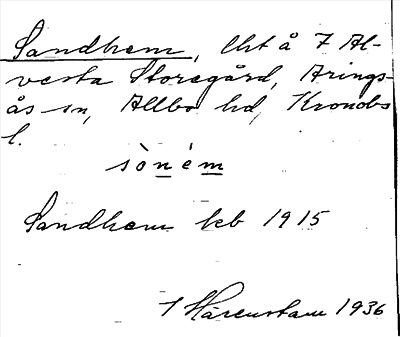 Sandhem, lht å 7 Al-
vesta Storegård, Arings-
ås sn, Allbo hd, Kronobs
l.
sòném
Sandhem kb 1915
I Härenstam 1936